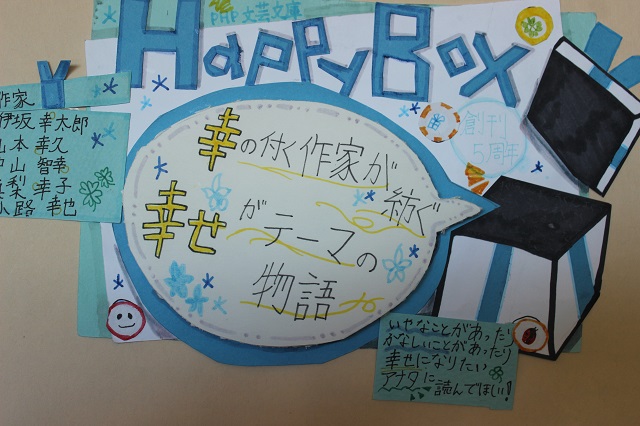 PHP文芸文庫
HAPPYBOX
創刊
5周年
作家
伊坂 幸太郎
山本 幸久
中山 智幸
真梨 幸子
小路 幸也
幸の付く作家が
紡ぐ
幸せがテーマの
物語
いやなことがあったり
かなしいことがあったり
幸せになりたい
アナタに
読んでほしい!